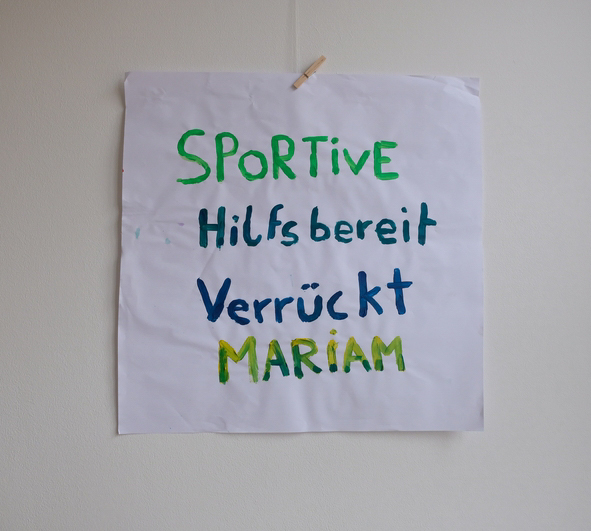 SPORTiVE
Hilfsbereit
Verrückt
MARiAM